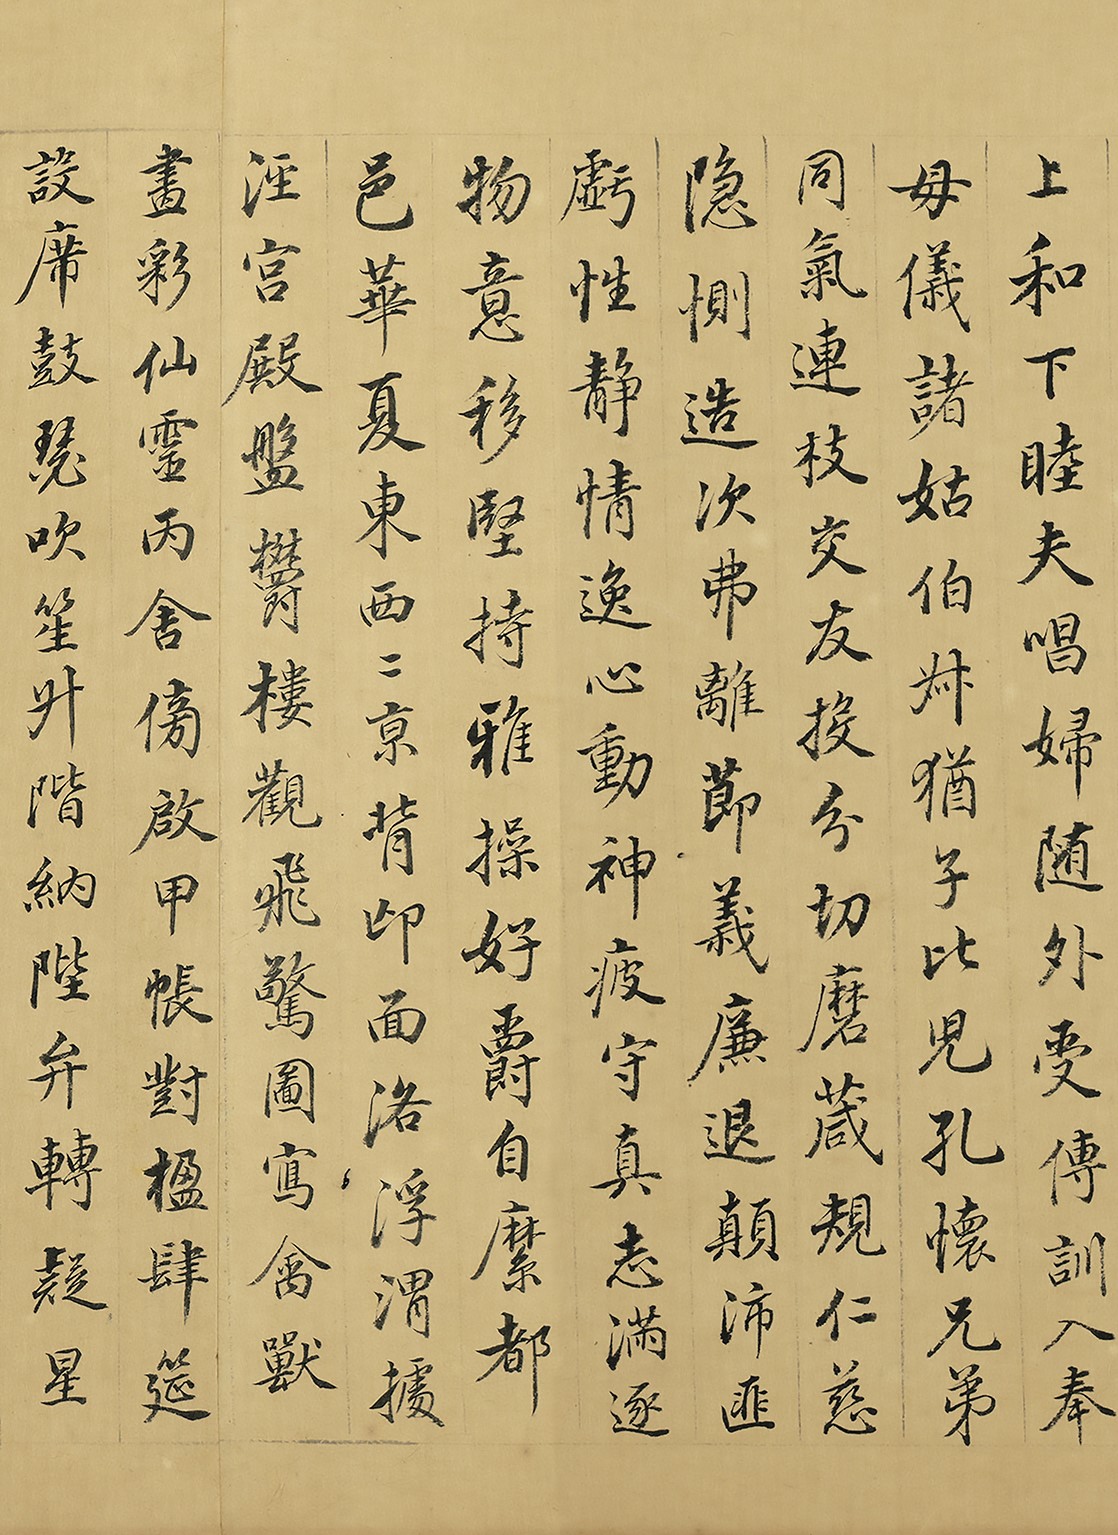 上和下睦夫唱婦随外受傅訓入奉
母儀諸姑伯叔猶子比兒孔懷兄弟
同氣連枝交友投分切磨葴規仁慈
隐惻造次弗離節義廉退顛沛匪
虧性静情逸心動神疲守真志滿逐
物意移堅持雅操好爵自縻都
邑華夏東西二京背邙面洛浮渭據
涇宮殿盤欝樓觀飛驚圖寫禽獸
畫彩仙靈丙舍傍啟甲帳對楹肆筵
設席鼓瑟吹笙升階納陛弁轉疑星